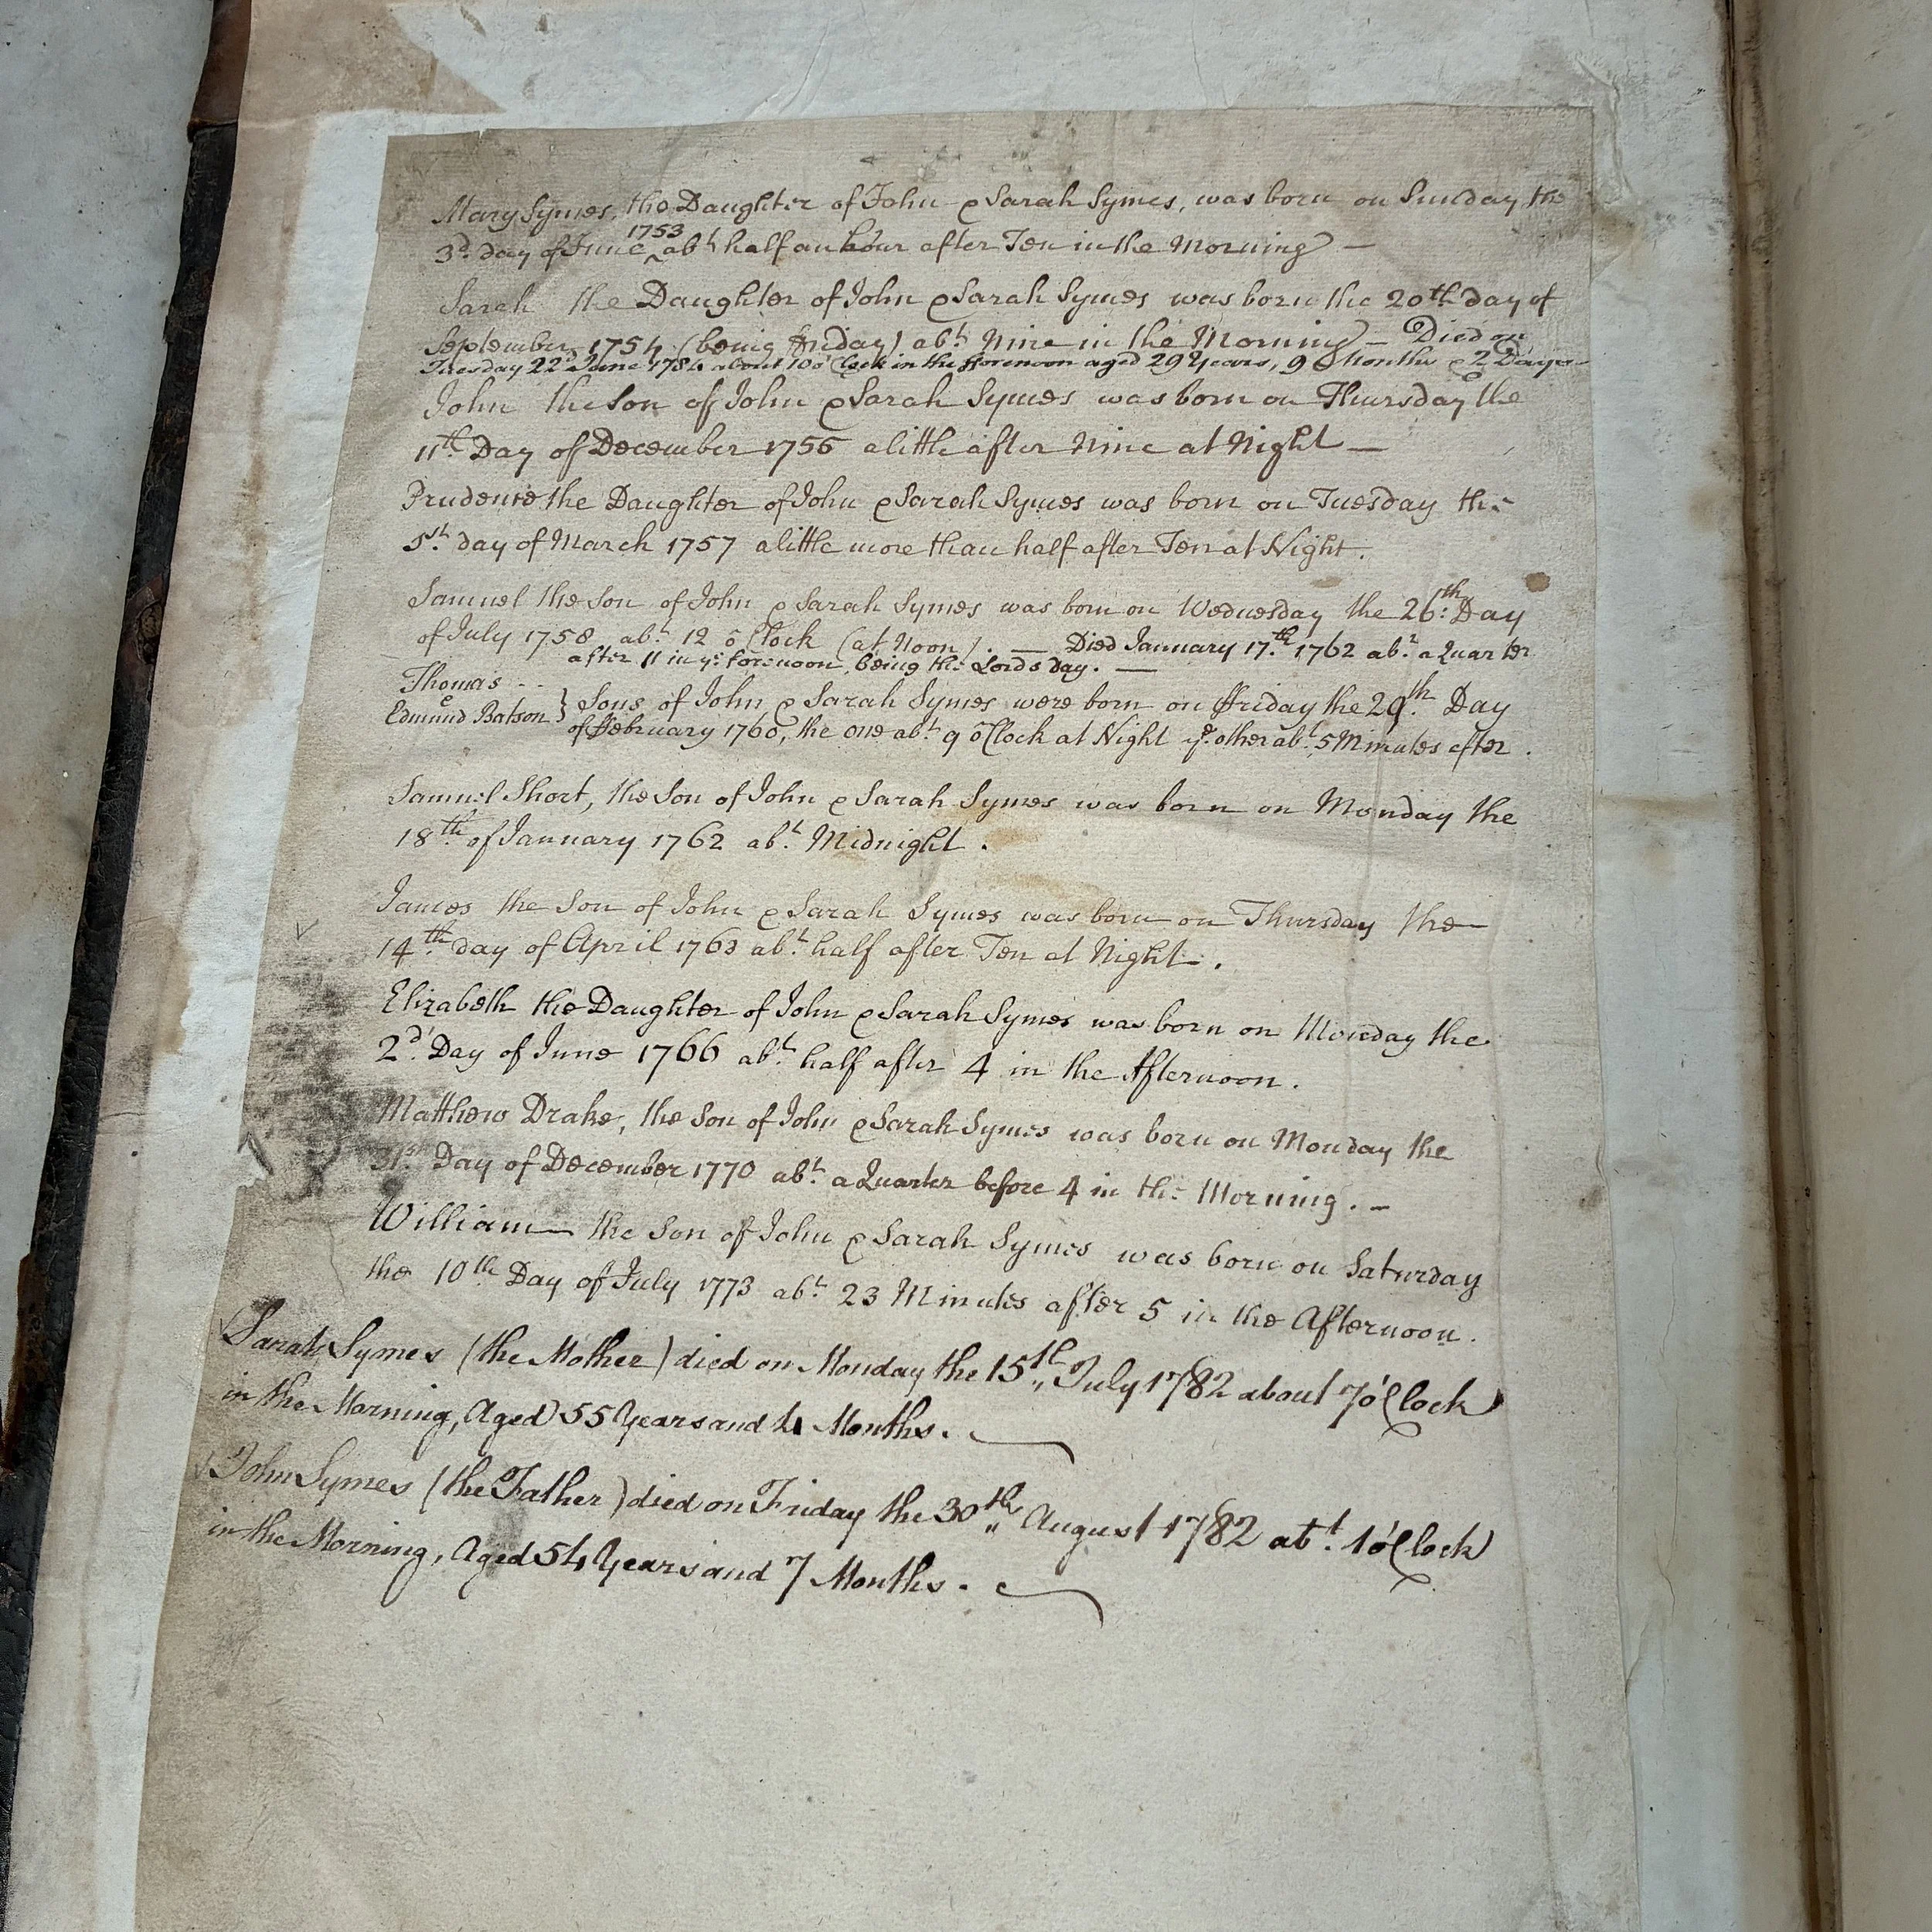 Mary Symes, the Daughter of John & Sarah Symes, was born on Sunday the
3.d day of June 1753 ab.t half an hour after Ten in the Morning —
Sarah the Daughter of John & Sarah Symes was born the 20th day of
September 1754 (being Friday) ab.t Nine in the Morning — Died on
Tuesday 22.d June 1784 about 10 o'Clock in the fforenoon aged 29 Years, 9 Months & 2 Days —
John the Son of John & Sarah Symes was born on Thursday the
11.th Day of December 1755 a little after Nine at Night —
Prudence the Daughter of John & Sarah Symes was born on Tuesday the
1.st day of March 1757 a little more than half after Ten at Night.
Samuel the Son of John & Sarah Symes was born on Wednesday the 26.th Day
of July 1758 ab.t 12 o Clock (at Noon). — Died January 17.th 1762 ab.t a Quarter
after 11 in y.e forenoon, being the Lords day. —
Thomas - -
& Edmund Batson } Sons of John & Sarah Symes were born on ffriday the 29.th Day
of ffebruary 1760, the one ab.t 9 o Clock at Night y.e other ab.t 5 Minutes after.
Samuel Short, the Son of John & Sarah Symes was born on Monday the
18.th of January 1762 ab.t Midnight.
James the Son of John & Sarah Symes was born on Thursday the
14.th day of April 1763 ab.t half after Ten at Night.
Elizabeth the Daughter of John & Sarah Symes was born on Monday the
2.d Day of June 1766 ab.t half after 4 in the Afternoon.
Matthew Drake, the Son of John & Sarah Symes was born on Monday the
31.st Day of December 1770 ab.t a Quarter before 4 in the Morning. –
William the Son of John & Sarah Symes was born on Saturday
the 10.th Day of July 1773 ab.t 23 Minutes after 5 in the Afternoon.
Sarah Symes (the Mother) died on Monday the 15th July 1782 about 7 o'Clock
in the Morning, Aged 55 Years and 4 Months.
John Symes (the Father) died on Friday the 30th August 1782 ab.t 1 o'Clock
in the Morning, Aged 54 Years and 7 Months.